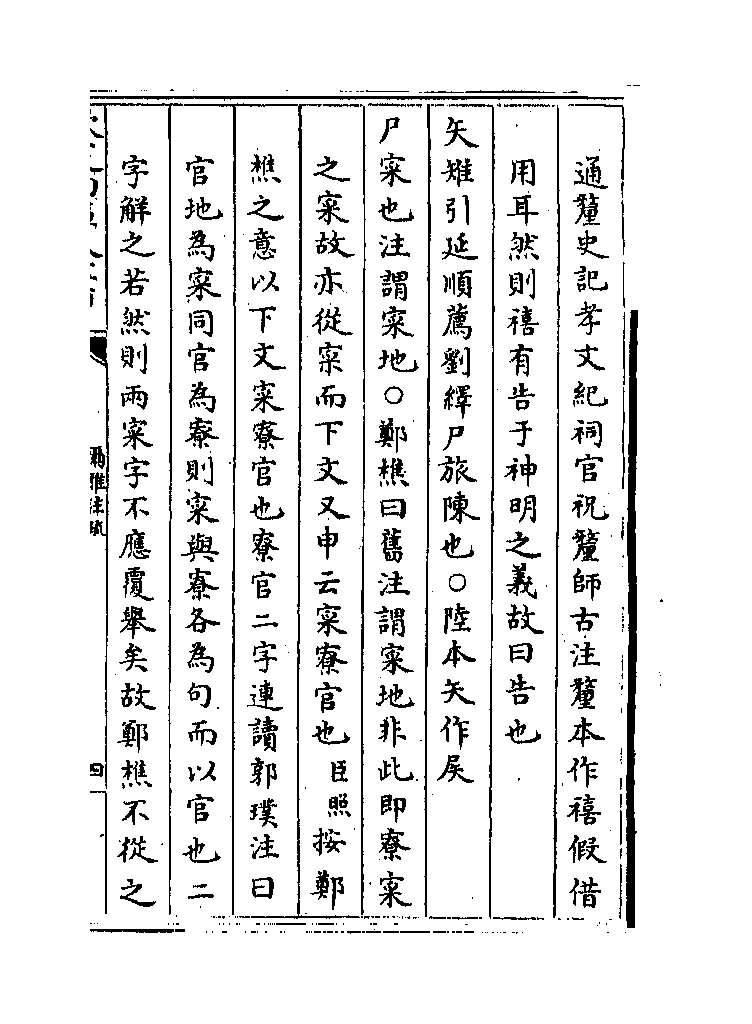 通釐史記孝文紀祠官祝釐師古注釐本作禧假借
用耳然則禧有告于神明之義故曰告也
矢雉引延順薦劉繹尸旅陳也○陸本矢作𡱁
尸寀也注謂寀地○鄭樵曰舊注謂寀地非此即寮寀
之寀故亦從寀而下文又申云寀寮官也臣照按鄭
樵之意以下文寀寮官也寮官二字連讀郭璞注曰
官地為寀同官為寮則寀與寮各為句而以官也二
字解之若然則兩寀字不應覆舉矣故鄭樵不從之
爾雅注疏
四